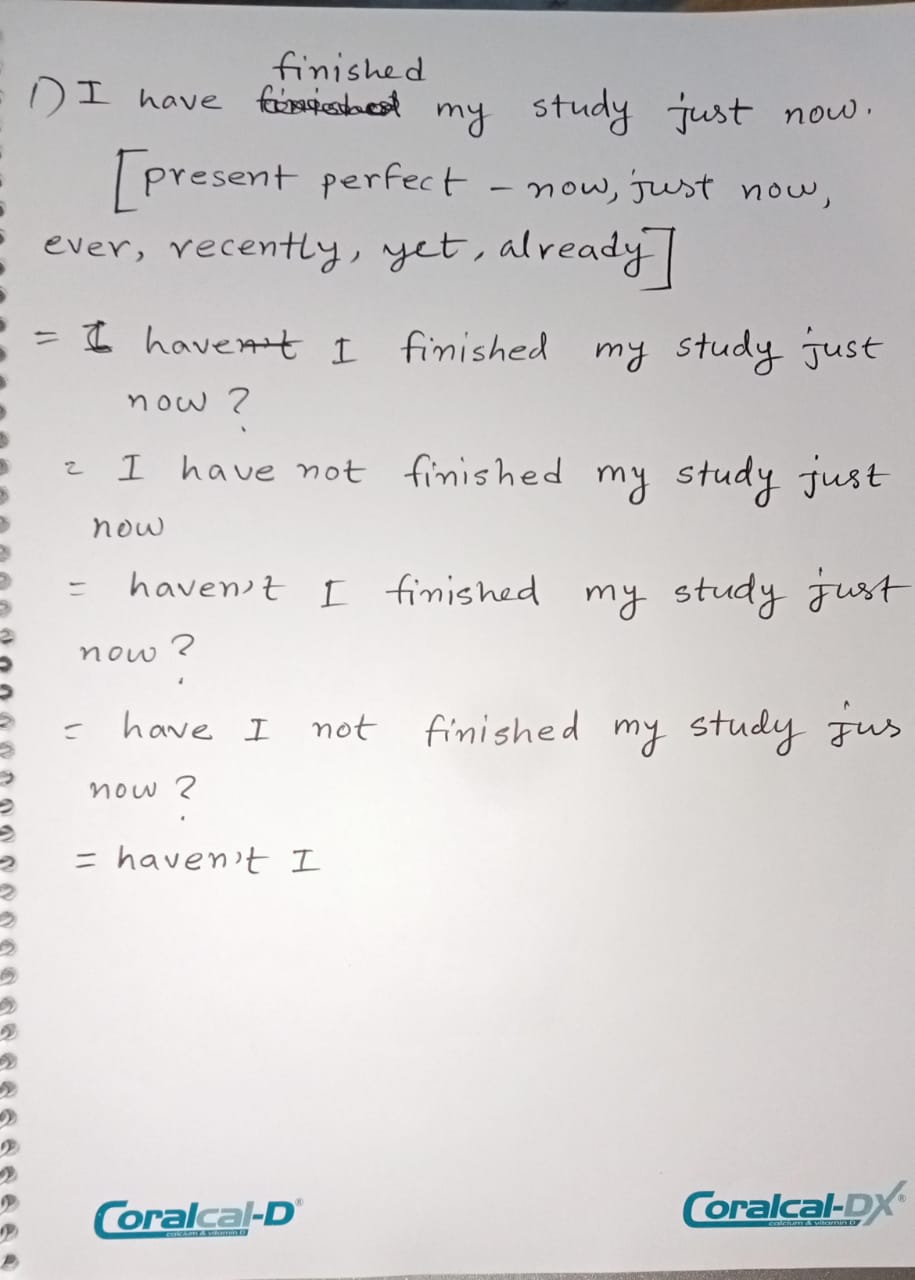 finished
1) I have my study just now.
[present perfect - now, just now,
ever, recently, yet, already]
= I haven't I finished my study just
now?
= I have not finished my study just
now
= haven't I finished my study just
now?
= have I not finished my study jus
now?
= haven't I
Coralcal-D®
calcium & vitamin D
Coralcal-DX®
calcium & vitamin D